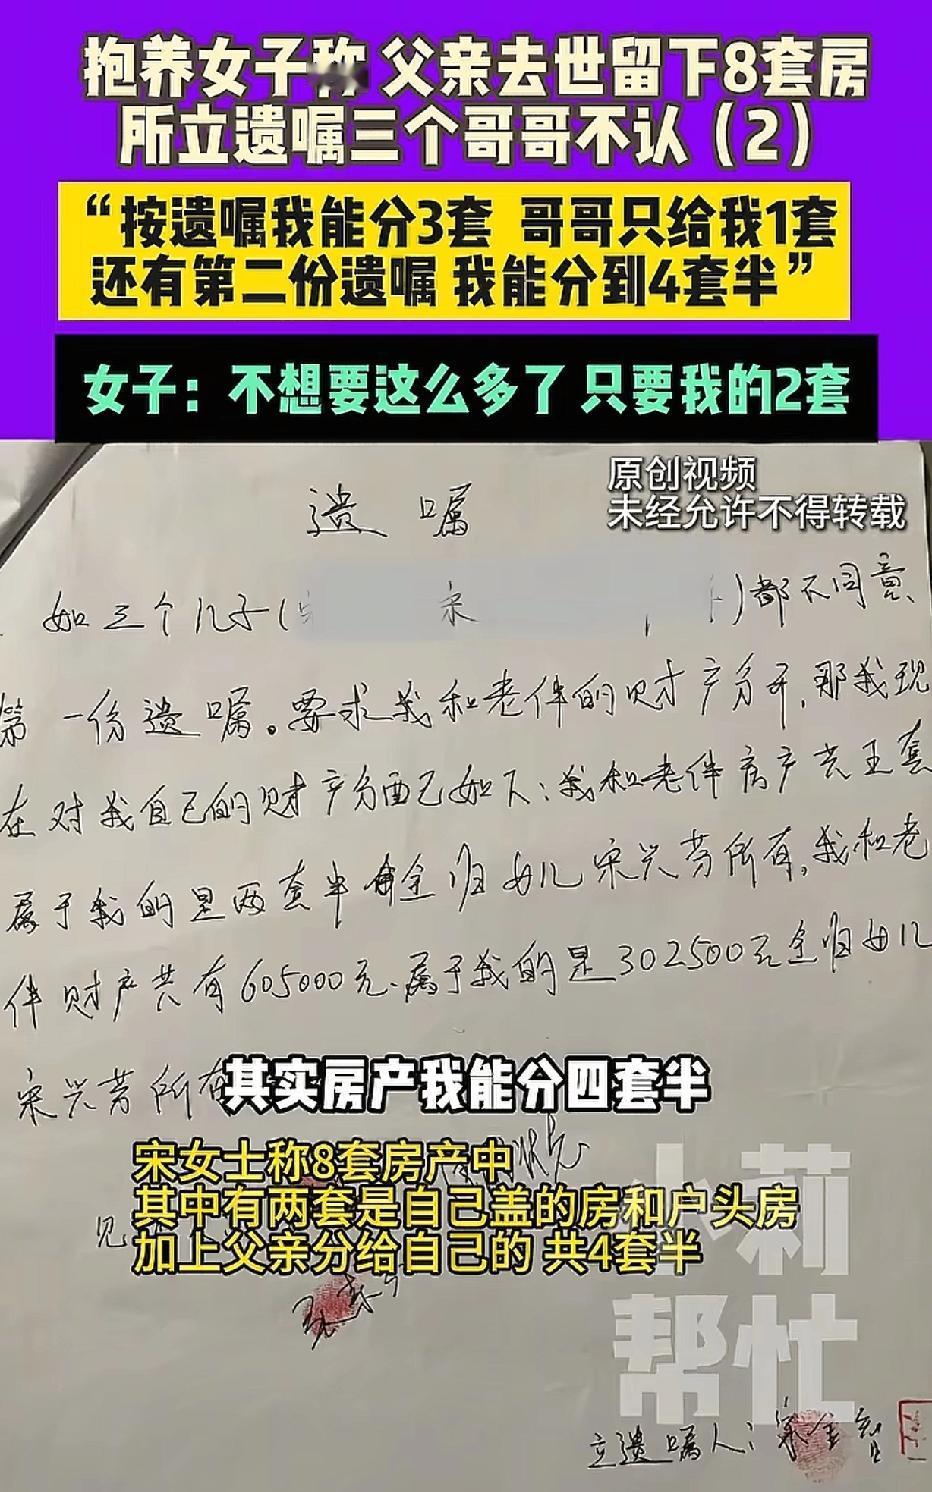 抱养女子称 父亲去世留下8套房
所立遗嘱三个哥哥不认（2）
“按遗嘱我能分3套 哥哥只给我1套
还有第二份遗嘱 我能分到4套半”
女子：不想要这么多了 只要我的2套
原创视频
未经允许不得转载
遗嘱
如三个儿子(宋 宋 )都不同意
第一份遗嘱。要求我和老伴的财产分开,那我现
在对我自己的财产分配已如下:我和老伴房产共五套
属于我的是两套半 全归女儿宋兴芳所有,我和老
伴财产共有605000元、属于我的是302500元全归女儿
宋兴芳所有
其实房产我能分四套半
宋女士称8套房产中
其中有两套是自己盖的房和户头房
加上父亲分给自己的 共4套半
见
小莉
帮忙
立遗嘱人:宋金智